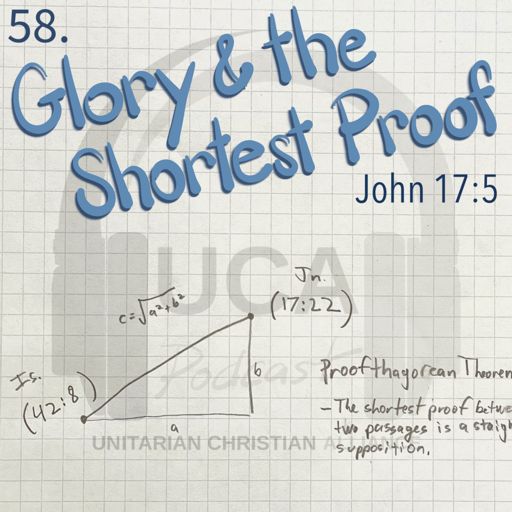 58.
Glory & the
Shortest Proof
John 17:5
UCA
Podcast
UNITARIAN CHRISTIAN ALLIAN
Jn.
(17:22)
c=√a²+b²
b
Is.
(42:8)
a
Proofthagorean Theorem
-The shortest proof betwe
two passages is a straig
supposition.